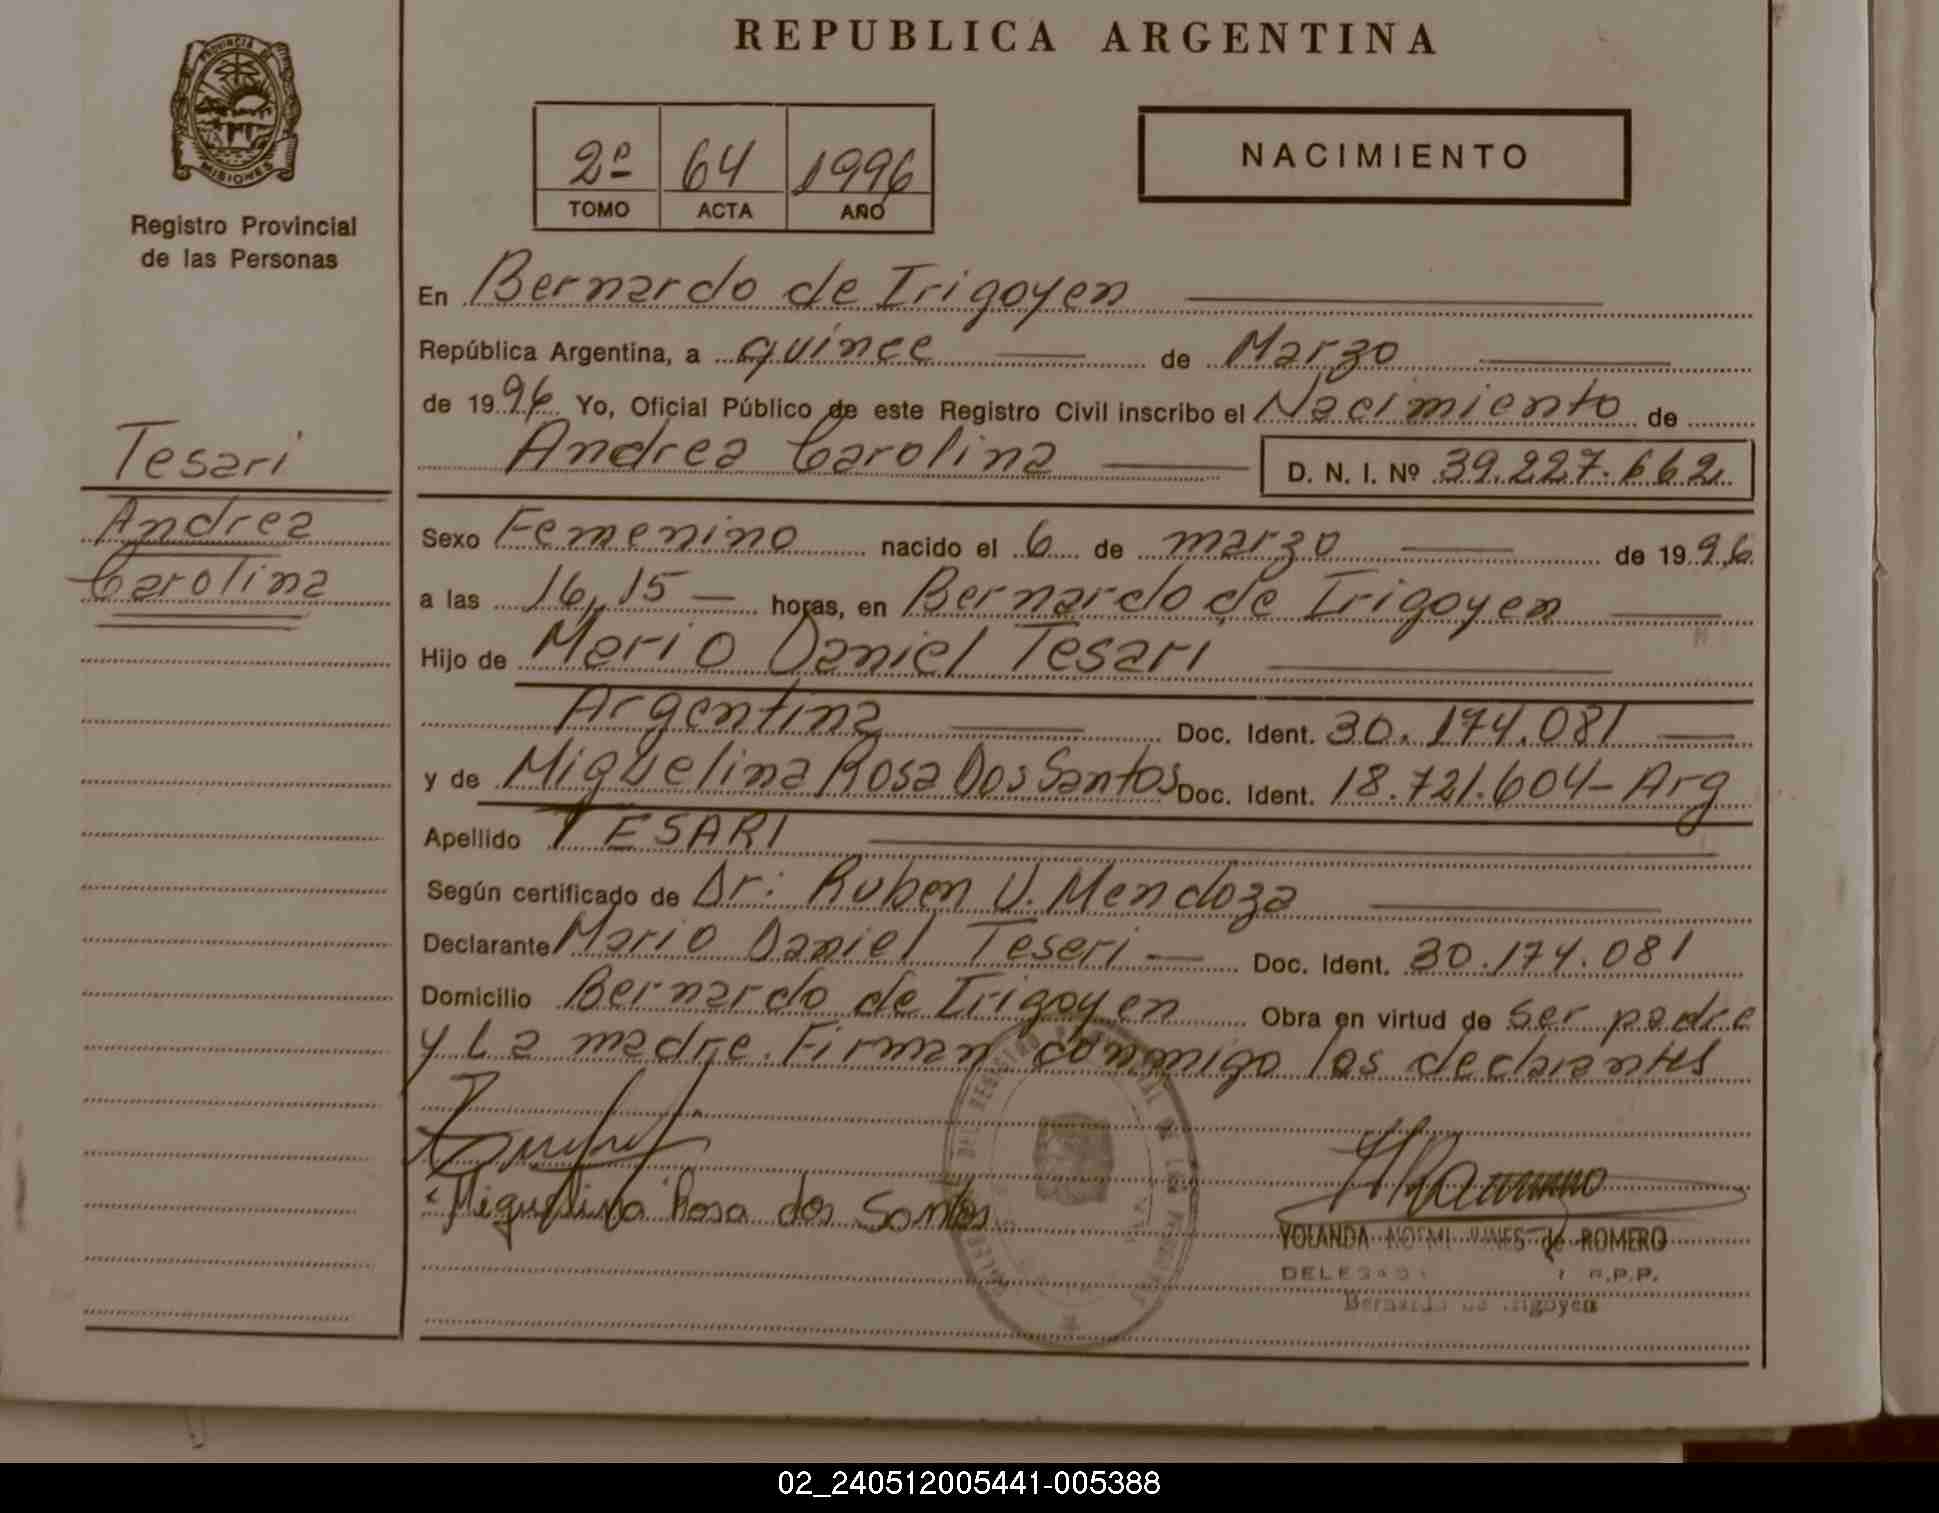 REPUBLICA ARGENTINA
PROVINCIA DE
MISIONES
Registro Provincial
de las Personas
2º 64 1996
TOMO ACTA AÑO
NACIMIENTO
En Bernardo de Irigoyen
República Argentina, a quince de Marzo
de 1996 Yo, Oficial Público de este Registro Civil inscribo el Nacimiento de
Andrea Carolina D. N. I. Nº 39.227.662
Tesari
Andrea
Carolina
Sexo Femenino nacido el 6 de marzo de 1996
a las 16,15 horas, en Bernardo de Irigoyen
Hijo de Mario Daniel Tesari
Argentina Doc. Ident. 30.174.081
y de Miguelina Rosa Dos Santos Doc. Ident. 18.721.604-Arg
Apellido TESARI
Según certificado de Dr: Ruben V. Mendoza
Declarante Mario Daniel Tesari Doc. Ident. 30.174.081
Domicilio Bernardo de Irigoyen Obra en virtud de ser padre
y La madre. Firman conmigo los declarantes
Miguelina Rosa dos Santos
YOLANDA NOEMI YUNES de ROMERO
R.P.P.
Bernardo de Irigoyen
02_240512005441-005388